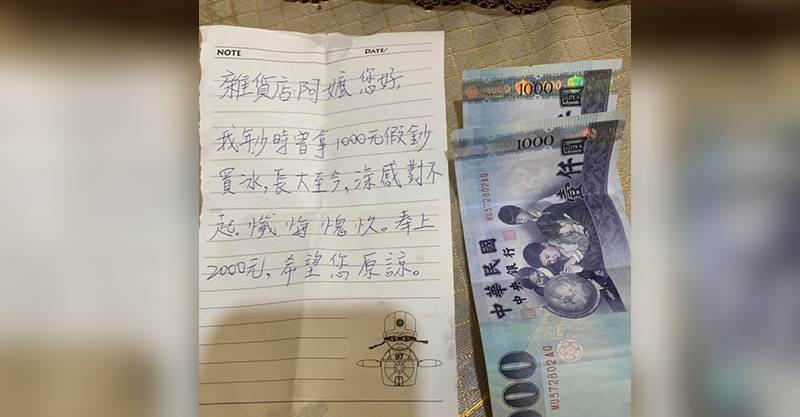 NOTE DATE/
雜貨店阿嬤您好,
我年少時曾拿1000元假鈔
買冰,長大至今,深感對不
起.懺悔愧疚。奉上
2000元,希望您原諒。
97
1000
1000
壹仟圓
中華民國
中央銀行
MU372802AQ
MU372802AQ